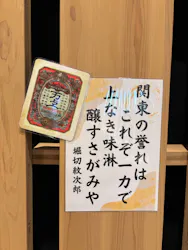 関東の誉れは
これぞ一力で
上なき味淋
醸すさがみや
堀切紋次郎